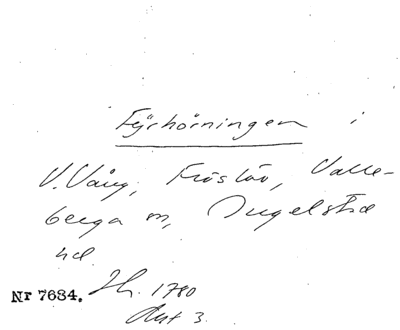 Fyrhörningen i
V. Vång, Fröslöv, Valle-
berga sn, Ingelstad
hd
Nr 7684. Jh. 1780
Akt 3.